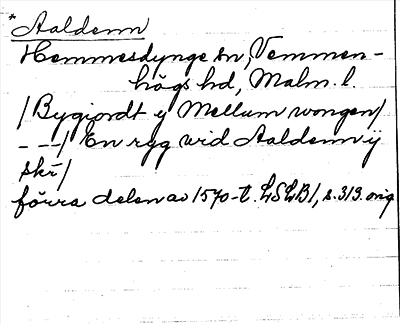 * Aaldenn
Hemmesdynge sn, Vemmen-
högs hd, Malm. l.
/Bygiordt y Mellum wongen/
- - -/ En ryg wid Aaldenn ÿ
skr/
förra delen av 1570-t. LSLB1, s. 313. orig